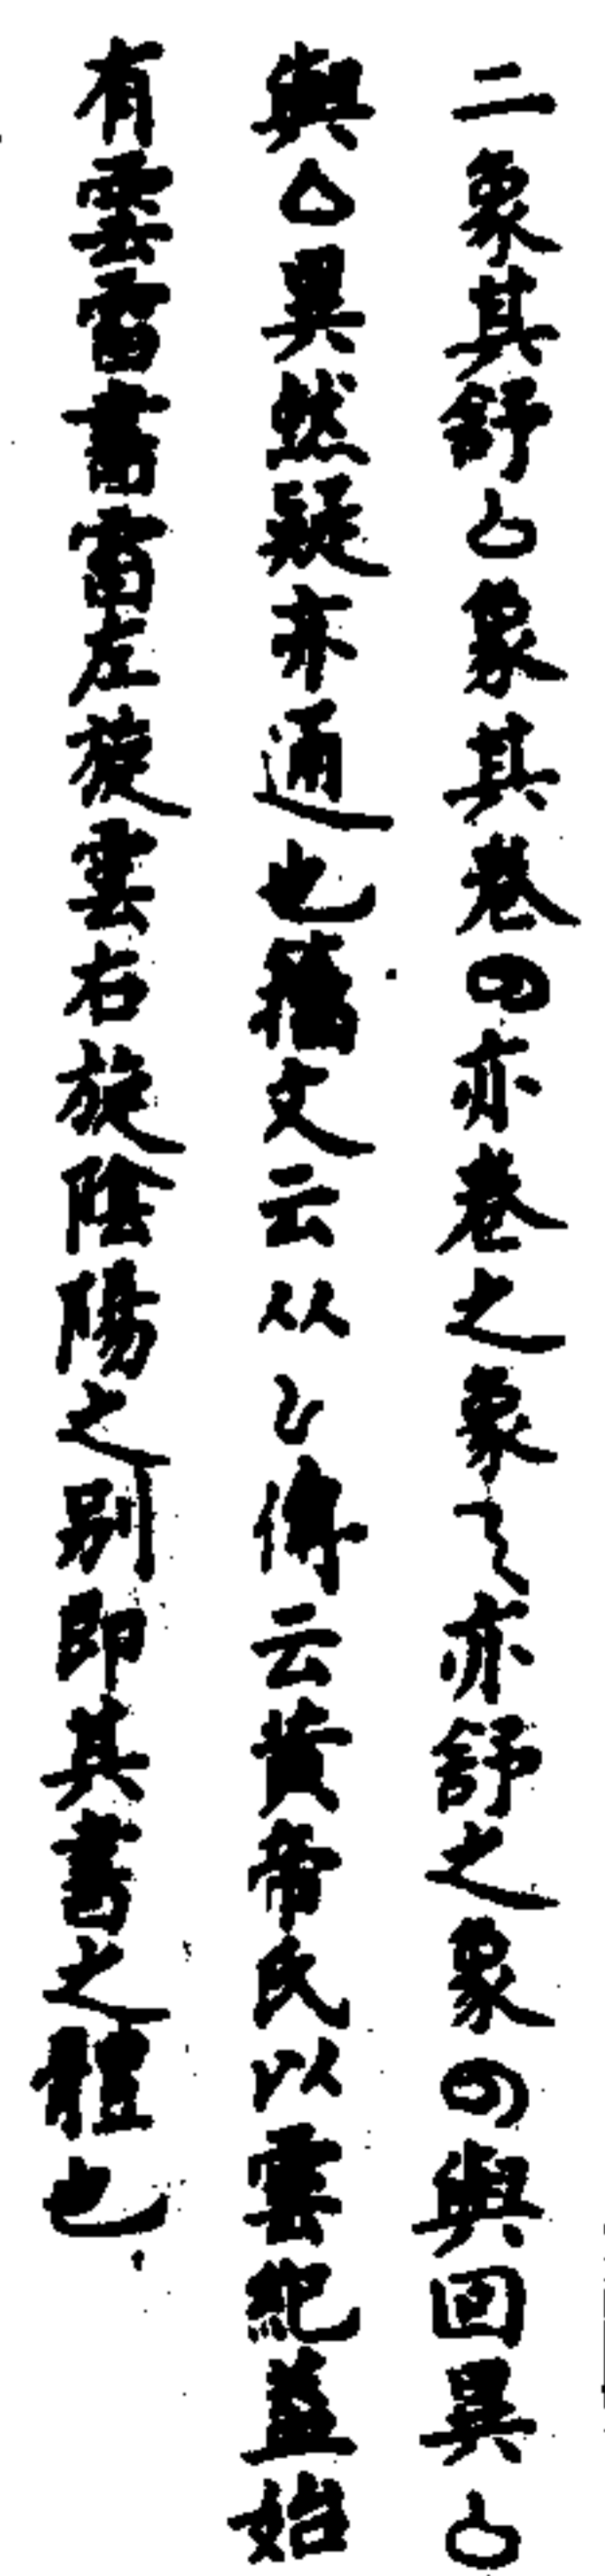 二象其舒㇄象其卷亦卷之象亦舒之象與回異
與異然疑亦通也籒文云从傳云黃帝氏以雲紀蓋始
有雲雷書雷左旋雲右旋陰陽之別即其書之體也